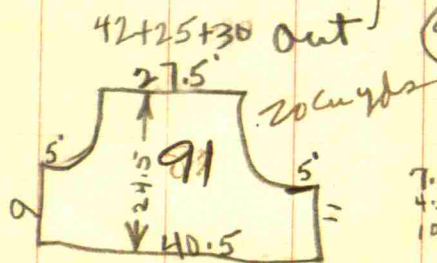 42+25+30 out
27.5'
20 cu yds
5' 24.5 91 5'
9 11
40.5
7.
4.
10